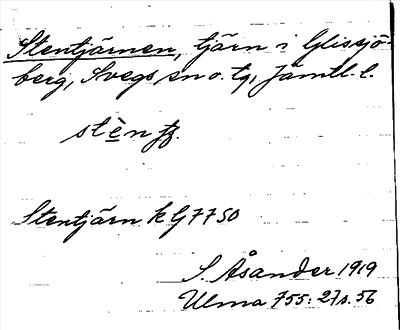 Stentjärnen, tjärn i Glissjö-
berg, Svegs sn o. tg, Jämtl. l.
stè̱n
Stentjärn k G7750
S. Åsander 1919
Ulma 755: 27 s. 56